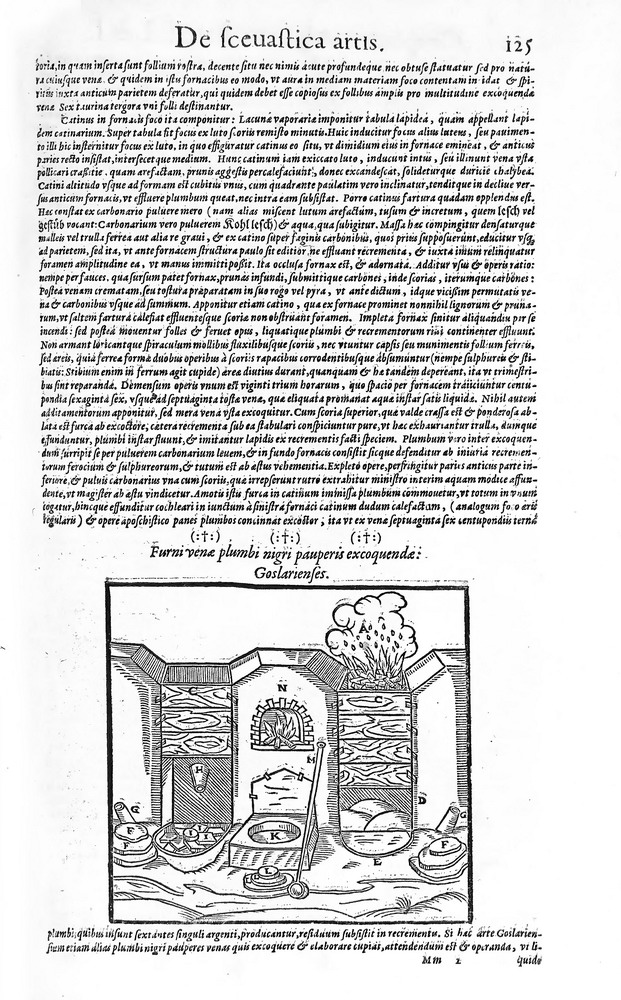 De sceuastica artis. 125
foria, in quam inserta sunt follium rostra, decente situ nec nimis acute profundeque nec obtuse statuatur sed pro natu-
ra cuiusque venæ & quidem in istis fornacibus eo modo, vt aura in mediam materiam foco contentam incidat & spi-
ritus iuxta anticum parietem deferatur, qui quidem debet esse copiosus ex follibus amplis pro multitudine excoquendæ
venæ Sex taurina tergora vni folli destinantur.
Catinus in fornacis foco ita componitur: Lacunæ vaporariæ imponitur tabula lapidea, quam appellant lapi-
dem catinarium. Super tabula fit focus ex luto scoriis remisto minutis. Huic inducitur focus alius lutens, seu pauimen-
to illi hic insternitur focus ex luto, in quo effiguratur catinus eo situ, vt dimidium eius in fornace emineat, & anticus
paries recto insistat, intersecetque medium. Hunc catinum iam exiccato luto, inducunt intus, seu illinunt vena vsta
pollicari crassitie. quam arefactam, prunis aggestis percalefaciunt, donec excandescat, solideturque duricie chalybea.
Catini altitudo vsque ad formam est cubitus vnus, cum quadrante paulatim vero inclinatur, tenditque in decliue ver-
sus anticum fornacis, vt effluere plumbum queat, nec intra eam subsistat. Porro catinus fartura quadam opplendus est.
Hæc constat ex carbonario puluere mero (nam alias miscent lutum arefactum, tusum & incretum, quem lesch vel
gestüb vocant: Carbonarium vero puluerem Kohl lesch) & aqua, qua subigitur. Massa hæc compingitur densaturque
malleis vel trulla ferrea aut alia re graui, & ex catino super faginis carbonibus, quos prius supposuerunt, educitur vsq;
ad parietem, sed ita, vt ante fornacem structura paulo sit editior ne effluant recrementa, & iuxta imum relinquatur
foramen amplitudine ea, vt manus immitti possit. Ita occlusa fornax est, & adornata. Additur vsus & operis ratio:
nempe per fauces. qua sursum patet fornax, prunas infundi, submittique carbones, inde scorias, iterumque carbones:
Postea venam crematam, seu tostura præparatam in suo rogo vel pyra, vt ante dictum, idque vicissim permutatis ve-
na & carbonibus vsque ad summum. Apponitur etiam catino, qua ex fornace prominet nonnihil lignorum & pruna-
rum, vt saltem fartura calefiat effluentesque scoriæ non obstruant foramen. Impleta fornax sinitur aliquandiu per se
incendi: sed postea mouentur folles & feruet opus, liquatique plumbi & recrementorum riui continenter effluunt.
Non armant loricantque spiraculum mollibus fluxilibusque scoriis, nec vtuntur capsis seu munimentis follium ferreis,
sed æreis, quia ferrea forma duobus operibus à scoriis rapacibus corrodentibusque absumuntur (nempe sulphureis & sti-
biatis: Stibium enim in ferrum agit cupide) æreæ diutius durant, quanquam & hæ tandem depereant, ita vt trimestri-
bus sint reparandæ. Demensum operis vnum est viginti trium horarum, quo spacio per fornacem traiiciuntur centu-
pondia sexaginta sex, vsque ad septuaginta tostæ venæ, quæ eliquata promanat aquæ instar satis liquida. Nihil autem
additamentorum apponitur, sed mera vena vsta excoquitur. Cum scoria superior, quæ valde crassa est & ponderosa ab-
lata est furca ab excoctore, cætera recrementa sub ea stabulari conspiciuntur pure, vt hac exhauriantur trulla, dumque
effunduntur, plumbi instar fluunt, & imitantur lapidis ex recrementis facti speciem. Plumbum vero inter excoquen-
dum surripit se per puluerem carbonarium leuem, & in fundo fornacis consistit sicque defenditur ab iniuria recremen-
torum ferocium & sulphureorum, & tutum est ab æstus vehementia. Expleto opere, perfringitur paries anticus parte in-
feriore, & puluis carbonarius vna cum scoriis, quæ irrepserunt rutro extrahitur ministro interim aquam modice affun-
dente, vt magister ab æstu vindicetur. Amotis istis furca in catinum immissa plumbum commouetur, vt totum in vnum
cogatur, hincque effunditur cochleari in iunctum à sinistra fornaci catinum dudum calefactam, (analogum foco æris
regularis) & opere aposchistico panes plumbos concinnat excoctor; ita vt ex venæ septuaginta sex centupondiis terna
(:†:) (:†:) (:†:)
Furni venæ plumbi nigri pauperis excoquendæ:
Goslarienses.
A
C
N
C
M
H
D
G
G
F
F
I
I
K
E
F
L
plumbi, quibus insunt sextantes singuli argenti, producantur, residuum subsistit in recrementis. Si hac arte Goslarien-
sium etiam alias plumbi nigri pauperes venas quis excoquere & elaborare cupiat, attendendum est & operanda, vt li-
Mm 2 quide